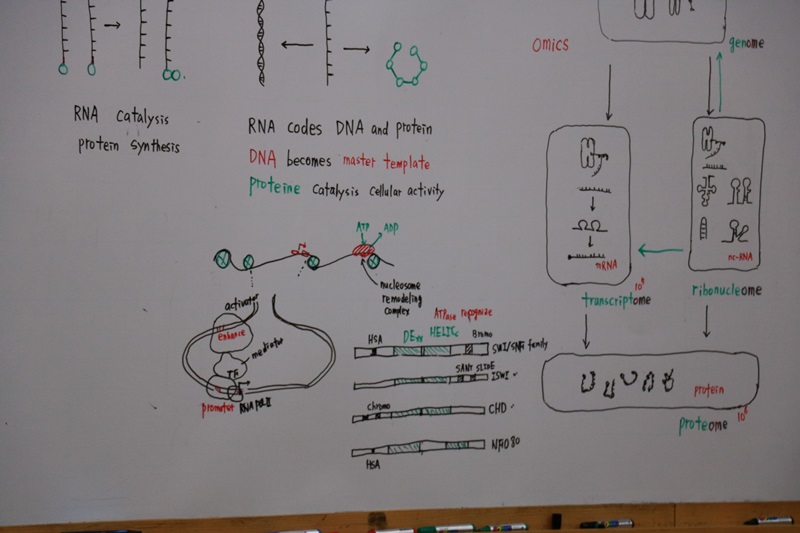 RNA catalysis
protein synthesis
RNA codes DNA and protein
DNA becomes master template
proteine catalysis cellular activity
Omics
genome
mRNA
nc-RNA
10⁶
transcriptome
ribonucleome
protein
proteome 10⁶
ATP ADP
nucleosome
remodeling
complex
activator
enhance
mediator
TF
promoter RNA Pol II
ATPase recognize
HSA DExx HELICc Bromo
SWI/SNF family
SANT SLIDE
ISWI
Chromo
CHD
INO80
HSA